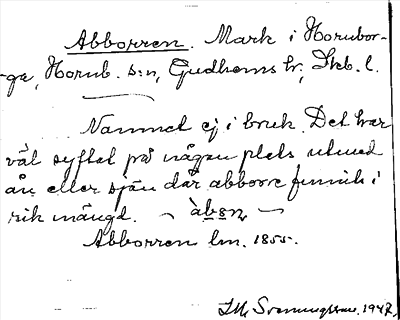 Abborren. Mark i Hornbor-
ga, Hornb. s:n, Gudhems hr, Skb. l.
Namnet ej i bruk. Det har
väl syftat på någon plats utmed
ån eller sjön där abborre funnits i
rik mängd. ~ àbɐn ~
Abborren lm. 1855.
Svenungsson. 1947.